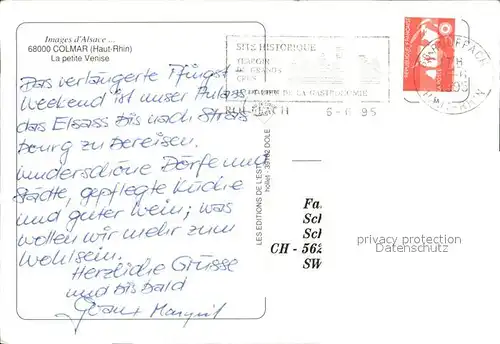 Images d'Alsace ...
68000 COLMAR (Haut-Rhin)
La petite Venise
Das verlängerte Pfingst-
Weekend ist unser Anlass
das Elsass bis nach Strass
bourg zu bereisen.
wunderschöne Dörfer und
Städte, gepflegte Küche
und guter Wein; was
wollen wir mehr zum
Wohlsein.
Herzliche Grüsse
und bis bald
SITE HISTORIQUE
TERROIR
DE GRANDS
DE LA GASTRONOMIE
ROUFFACH 6-6 95
LES EDITIONS DE L'EST
39102 DOLE
Fa
Sc
Sc
CH - 562
SW
privacy protection
Datenschutz